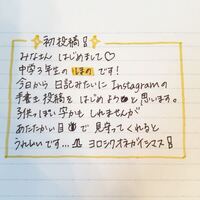 初投稿!
みなさん はじめまして♡
中学3年生の ほの です!
今日から 日記みたいに Instagramの
手書き投稿を はじめようと思います。
子供っぽい字かも しれませんが
あたたかい目で 見守ってくれると
うれしいです… ヨロシクオネガイシマス!